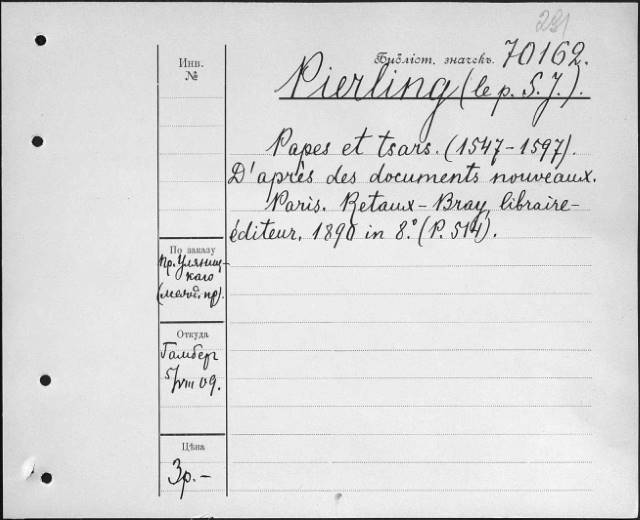 291
Библіот. значекъ. 70162.
Инв.
№
Pierling (le p. S. J.).
Papes et tsars. (1547-1597).
D'après des documents nouveaux.
Paris. Retaux-Bray, libraire-
éditeur, 1890 in 8.° (P. 514).
По заказу
пр. Уляниц-
каго
Откуда
Гамбер
5/VIII 09.
Цѣна
3р.-